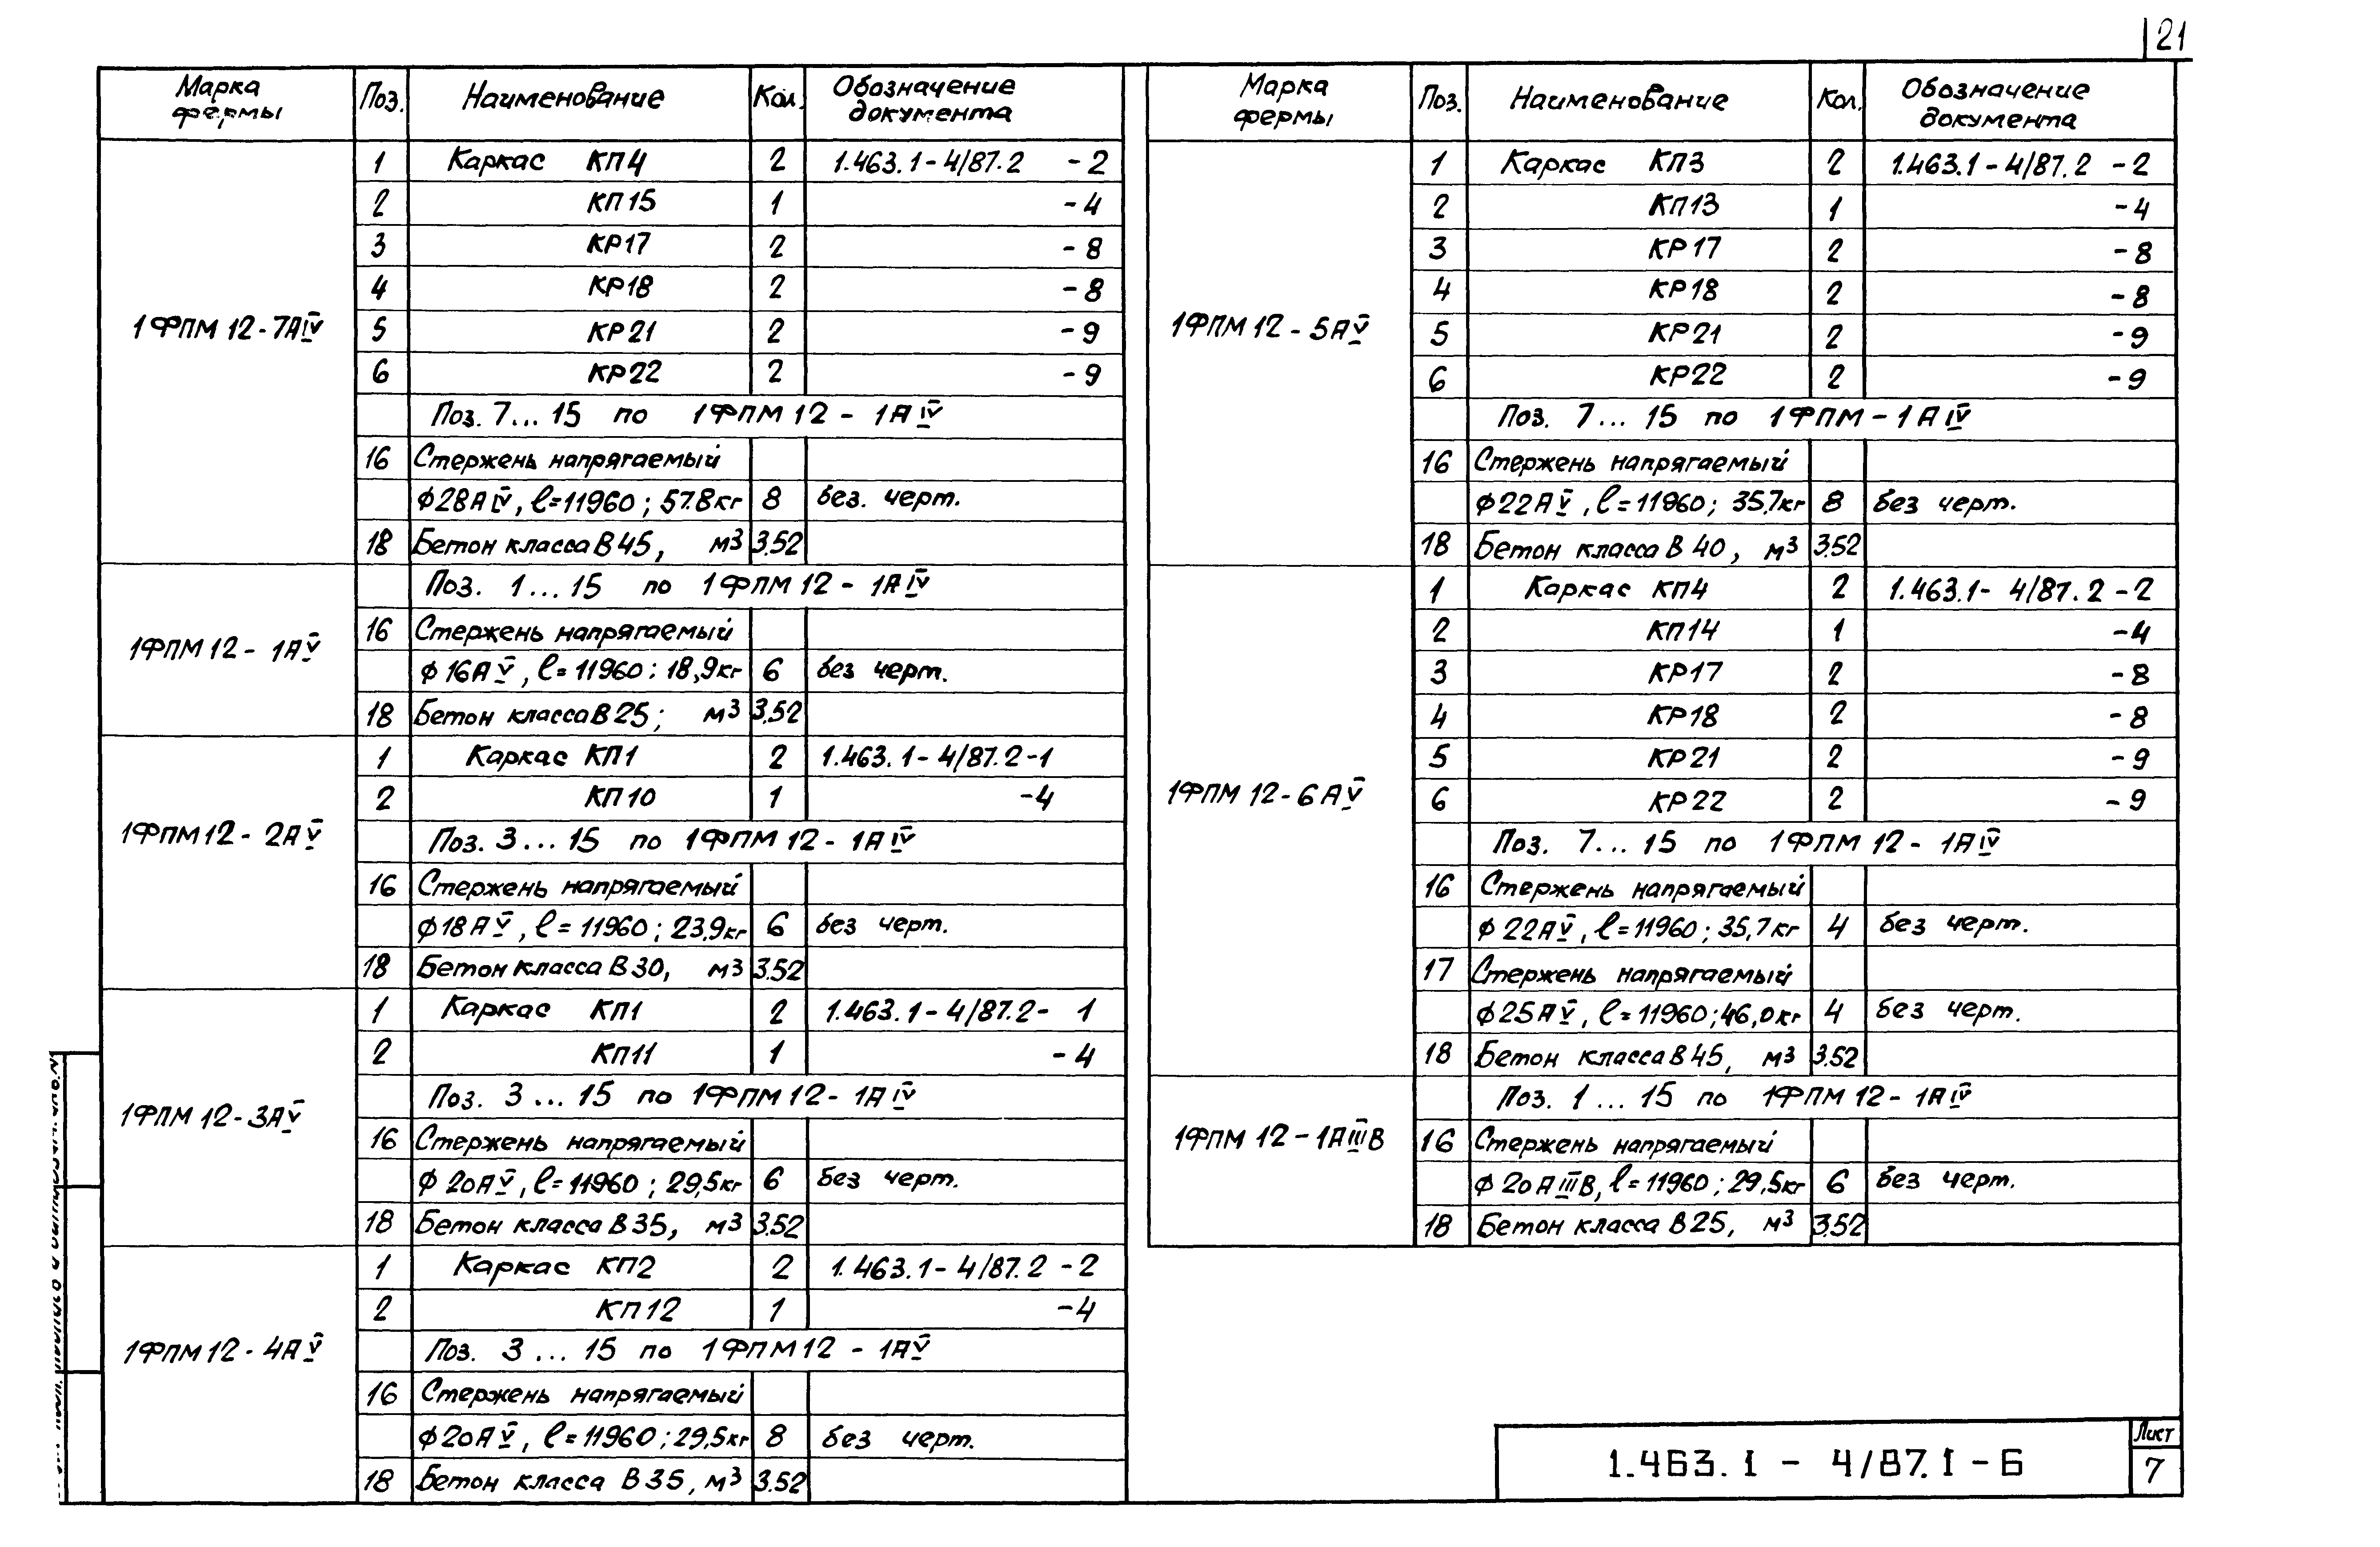 21
Марка фермы Поз. Наименование Кол. Обозначение документа
1ФПМ 12-7АIV
1 Каркас КП4 2 1.463.1-4/87.2 -2
2 КП15 1 -4
3 КР17 2 -8
4 КР18 2 -8
5 КР21 2 -9
6 КР22 2 -9
Поз. 7...15 по 1ФПМ12-1АIV
16 Стержень напрягаемый
ф28АIV, ℓ=11960; 57.8кг 8 без. черт.
18 Бетон класса В45, м3 3.52
1ФПМ12- 1АV
Поз. 1...15 по 1ФПМ12-1АIV
16 Стержень напрягаемый
ф16АV, ℓ=11960; 18,9кг 6 без черт.
18 Бетон класса В25; м3 3.52
1ФПМ12-2АV
1 Каркас КП1 2 1.463.1-4/87.2-1
2 КП10 1 -4
Поз. 3...15 по 1ФПМ12-1АIV
16 Стержень напрягаемый
ф18АV, ℓ=11960; 23.9кг 6 без черт.
18 Бетон класса В30, м3 3.52
1ФПМ12-3АV
1 Каркас КП1 2 1.463.1-4/87.2- 1
2 КП11 1 -4
Поз. 3...15 по 1ФПМ12-1АIV
16 Стержень напрягаемый
ф20АV, ℓ=11960; 29,5кг 6 без черт.
18 Бетон класса В35, м3 3.52
1ФПМ12-4АV
1 Каркас КП2 2 1.463.1-4/87.2 -2
2 КП12 1 -4
Поз. 3...15 по 1ФПМ12-1АV
16 Стержень напрягаемый
ф20АV, ℓ=11960; 29,5кг 8 без черт.
18 Бетон класса В35, м3 3.52
Марка фермы Поз. Наименование Кол. Обозначение документа
1ФПМ12-5АV
1 Каркас КП3 2 1.463.1-4/87.2 -2
2 КП13 1 -4
3 КР17 2 -8
4 КР18 2 -8
5 КР21 2 -9
6 КР22 2 -9
Поз. 7...15 по 1ФПМ-1АIV
16 Стержень напрягаемый
ф22АV, ℓ=11960; 35,7кг 8 без черт.
18 Бетон класса В40, м3 3.52
1ФПМ12-6АV
1 Каркас КП4 2 1.463.1-4/87.2-2
2 КП14 1 -4
3 КР17 2 -8
4 КР18 2 -8
5 КР21 2 -9
6 КР22 2 -9
Поз. 7...15 по 1ФПМ12-1АIV
16 Стержень напрягаемый
ф22АV, ℓ=11960; 35,7кг 4 без черт.
17 Стержень напрягаемый
ф25АV, ℓ=11960; 46,0кг 4 без черт.
18 Бетон класса В45, м3 3.52
1ФПМ12-1АIIIВ
Поз. 1...15 по 1ФПМ12-1АIV
16 Стержень напрягаемый
ф20АIIIВ, ℓ=11960; 29.5кг 6 без черт.
18 Бетон класса В25, м3 3.52
1.463.1 - 4/87.1-6
Лист
7